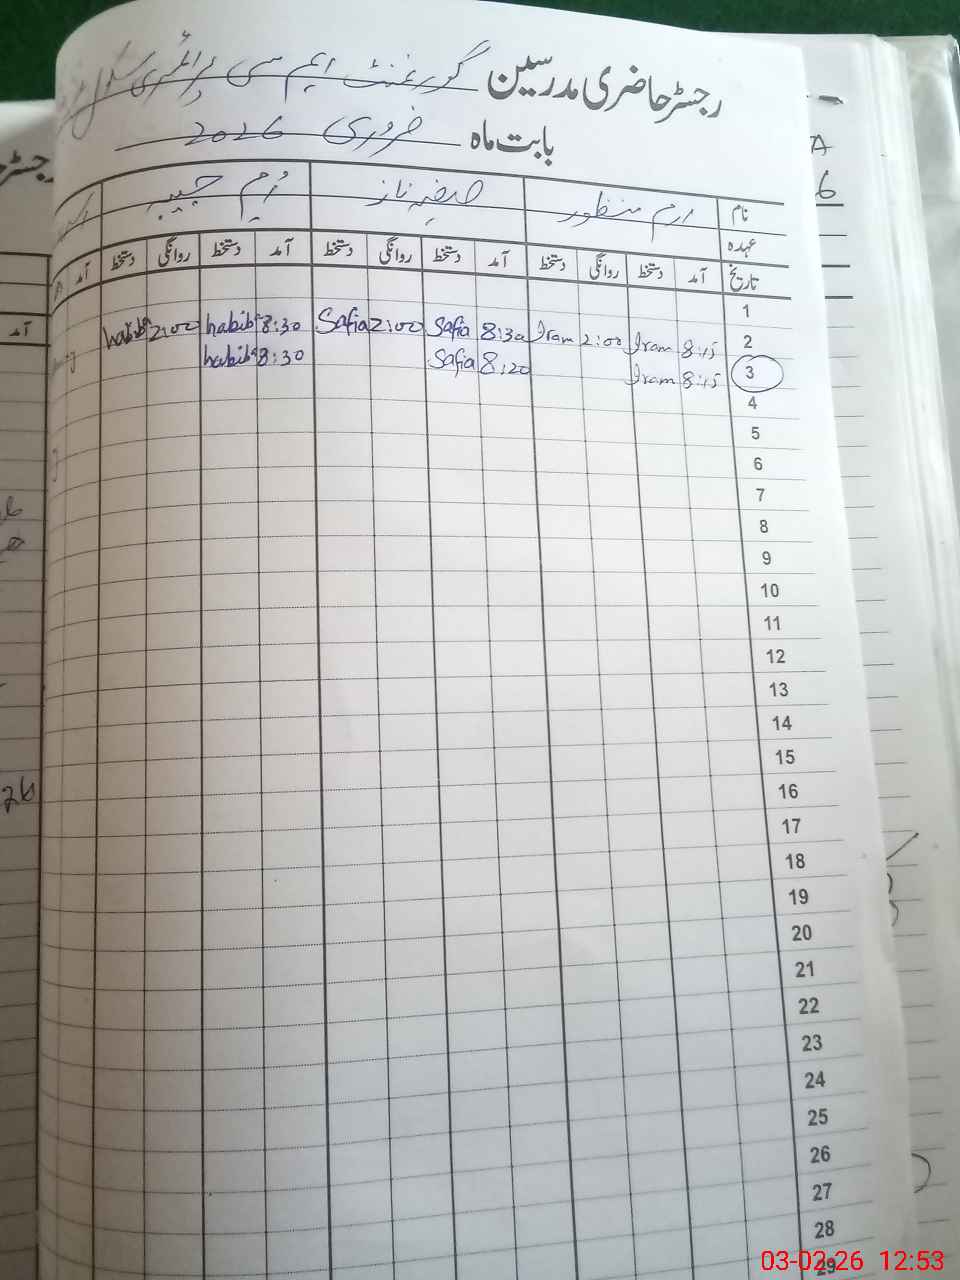 رجسٹر حاضری مدرسین گورنمنٹ ایم سی پرائمری سکول
بابت ماہ فروری 2026
نام ارم منظور صفیہ ناز اُم حبیبہ
عہدہ
تاریخ آمد دستخط روانگی دستخط آمد دستخط روانگی دستخط آمد دستخط روانگی دستخط آمد
1
2 8:15 Iram 2:00 Iram 8:30 Safia 2:00 Safia 8:30 habiba 2:00 habiba
3 8:15 Iram 8:20 Safia 8:30 habiba
4
5
6
7
8
9
10
11
12
13
14
15
16
17
18
19
20
21
22
23
24
25
26
27
28
29
آمد
26
A
6
03-02-26 12:53